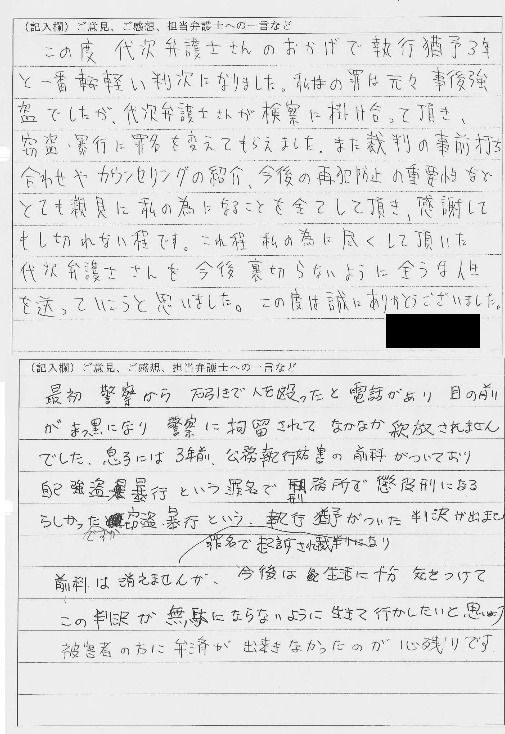 （記入欄）ご意見、ご感想、担当弁護士への一言など
この度 代次弁護士さんのおかげで執行猶予3年
と一番軽い判決になりました。私の罪は元々事後強
盗でしたが、代次弁護士さんが検察に掛け合って頂き、
窃盗・暴行に罪名を変えてもらえました。また裁判の事前打ち
合わせやカウンセリングの紹介、今後の再犯防止の重要性など
とても親身に私の為になることを全てして頂き、感謝して
もし切れない程です。これ程 私の為に尽くして頂いた
代次弁護士さんを今後裏切らないように全うな人生
を送っていこうと思いました。この度は誠にありがとうございました。
（記入欄）ご意見、ご感想、担当弁護士への一言など
最初 警察から 万引きで人を殴ったと電話があり 目の前
がまっ黒になり 警察に拘留されて なかなか釈放されません
でした。息子には 3年前、公務執行妨害の前科がついており
強盗 暴行という罪名で 刑務所で懲役刑になる
らしかったですが 窃盗、暴行という 罪名で起訴され裁判になり
執行猶予がついた 判決が出ま
前科は消えませんが、今後は 生活に十分 気をつけて
この判決が無駄にならないように生きて行かしたいと思い
被害者の方に弁済が出来なかったのが心残りです